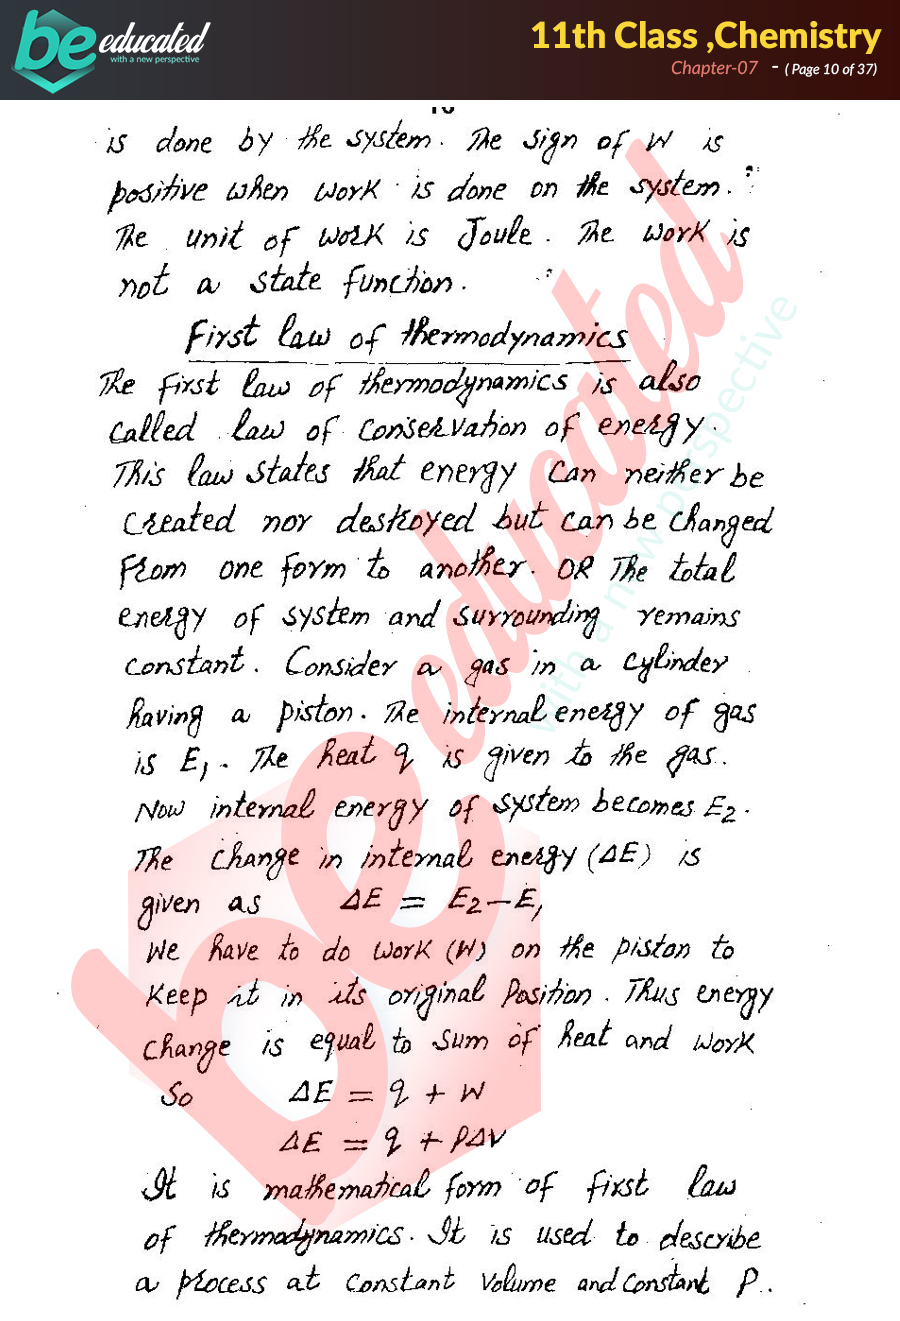 be educated
with a new perspective
11th Class ,Chemistry
Chapter-07 - ( Page 10 of 37)
is done by the system. The sign of W is
positive when work is done on the system.
The unit of work is Joule. The work is
not a state function.
First law of thermodynamics
The first law of thermodynamics is also
called law of conservation of energy.
This law states that energy can neither be
created nor destroyed but can be changed
from one form to another. OR The total
energy of system and surrounding remains
constant. Consider a gas in a cylinder
having a piston. The internal energy of gas
is E₁. The heat q is given to the gas.
Now internal energy of system becomes E₂.
The change in internal energy (ΔE) is
given as ΔE = E₂-E₁
We have to do work (W) on the piston to
keep it in its original Position. Thus energy
change is equal to sum of heat and work
So ΔE = q + W
ΔE = q + PΔV
It is mathematical form of first law
of thermodynamics. It is used to describe
a process at constant volume and constant P.
be educated
with a new perspective